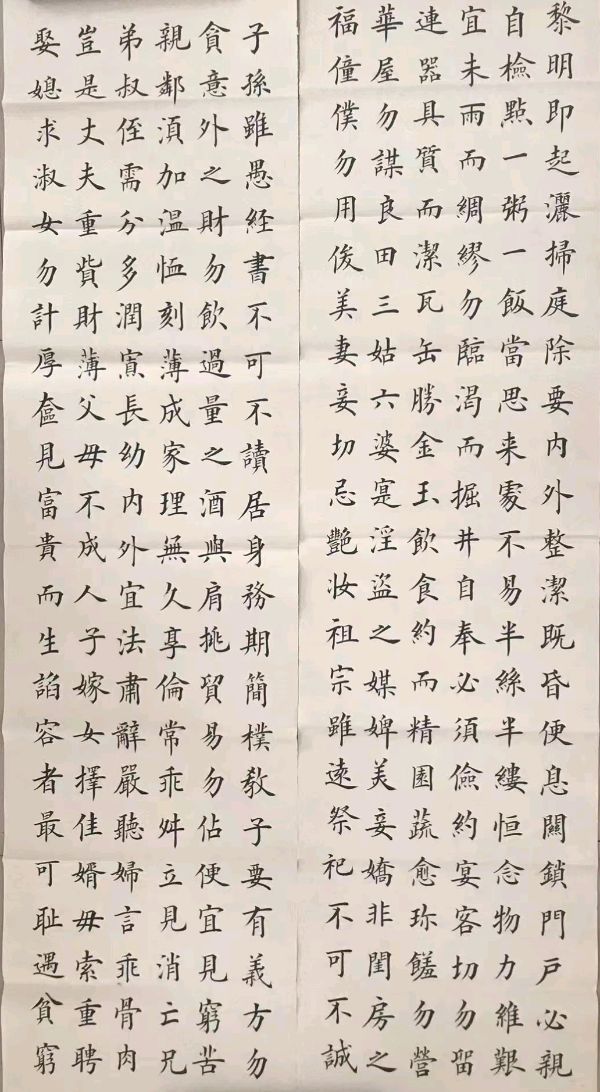 黎明即起灑掃庭除要内外整潔既昏便息關鎖門戶必親
自檢點一粥一飯當思来處不易半絲半縷恒念物力維艱
宜未雨而綢繆勿臨渴而掘井自奉必須儉約宴客切勿留
連器具質而潔瓦缶勝金玉飲食約而精園蔬愈珎饈勿營
華屋勿謀良田三姑六婆寔淫盜之媒婢美妾嬌非閨房之
福僮僕勿用俊美妻妾切忌艷妆祖宗雖遠祭祀不可不誠
子孫雖愚經書不可不讀居身務期簡樸教子要有義方勿
貪意外之財勿飲過量之酒與肩挑貿易勿佔便宜見窮苦
親鄰須加温恤刻薄成家理無久享倫常乖舛立見消亡兄
弟叔侄需分多潤寡長幼内外宜法肅辭嚴聽婦言乖骨肉
豈是丈夫重貲財薄父母不成人子嫁女擇佳婿毋索重聘
娶媳求淑女勿計厚奩見富貴而生諂容者最可耻遇貧窮